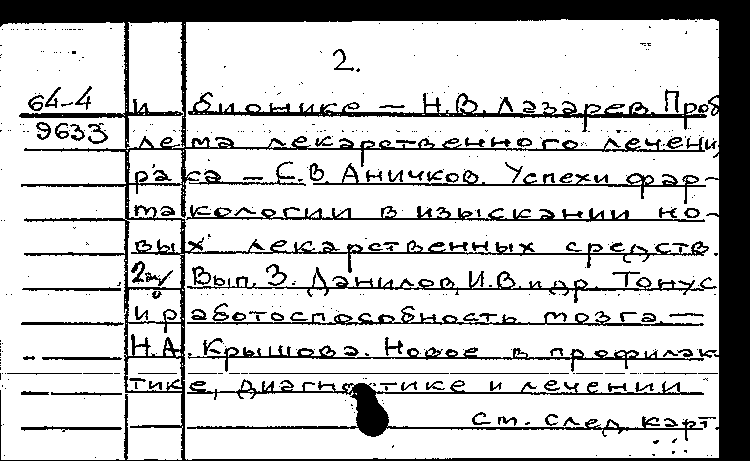 2.
64-4 и бионике — Н.В. Лазарев. Проб
9633 лема лекарственного лечени,
рака — С.В. Аничков. Успехи фар-
макологии в изыскании но-
вых лекарственных средств.
Вып. 3. Данилов, И.В. и др. Тонус
и работоспособность мозга. —
Н.А. Крышова. Новое в профилак
тике, диагностике и лечении
см. след. карт.